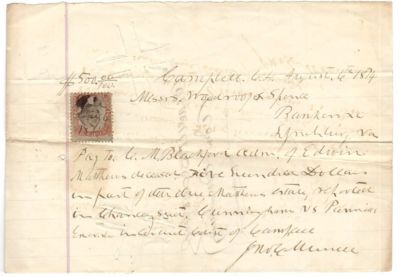 $500.00/100
Campbell Co. August 6th 1874
Messrs. Woodroof &
Bankers &c
Lynchburg, Va
Pay to C. M. Blackford adm. of Edwin
Matthews deceased Five Hundred Dollars
in part of debt due Matthews estate, reported
in Chancery suit, Cunningham vs
in circuit court of Campbell